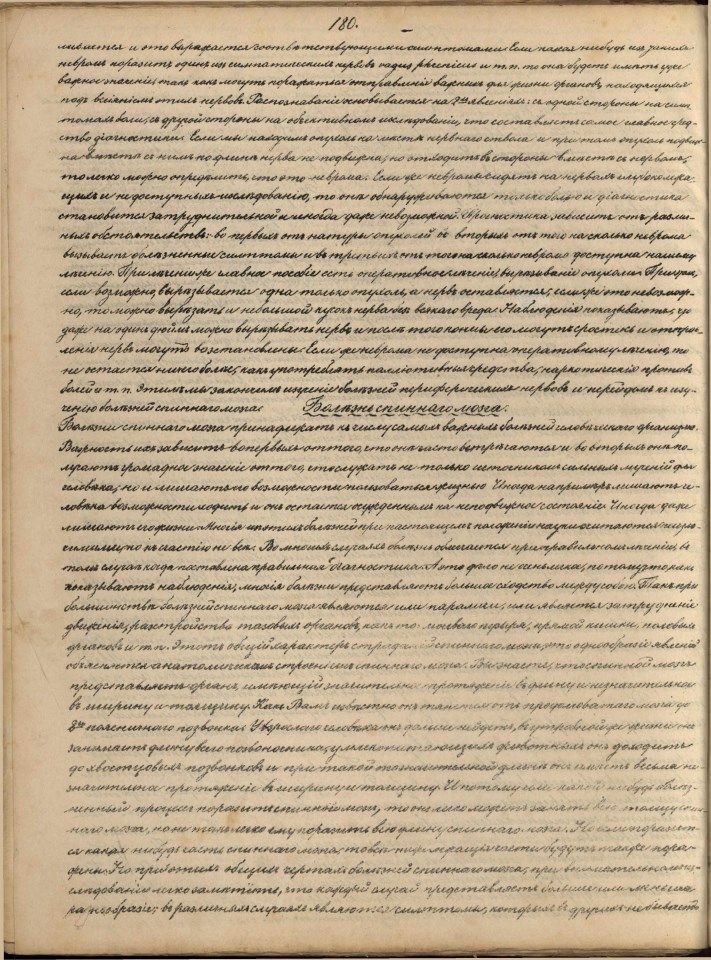 180.
ливается и это выражается соответствующими симптомами. Если какая нибудь из
неврома поразит один из симпатических нервов vagus, phrenicus и т.п. то она будет иметь уже
важное значение; так как могут поражаться отправления важных для жизни органов, находящихся
под влиянием этих нервов. Распознавание основывается на 2х явлениях: с одной стороны на симп
томах боли, с другой стороны на объективном исследовании, что составляет самое главное сред-
ство диагностики. Если мы находим опухоль на месте нервного ствола и при том опухоль подвиж-
на вместе с ним, по длине нерва не подвижна, но отходит в стороны вместе с нервом,
то легко можно определить, что это неврома. Если же невромы сидят на нервах глубоколежа-
щих и недоступных исследованию, то они обнаруживаются только болью и диагностика
становится затруднительной и иногда даже невозможной. Прогностика зависит от различ-
ных обстоятельств: во первых от натуры опухолей во вторых от того на сколько неврома
вызывает болезненные симптомы и в третьих от того на сколько неврома доступна нашему
лечению. При лечении же главное пособие есть оперативное лечение; вырезывание опухоли. Причем,
если возможно, вырезывается одна только опухоль, а нерв оставляется; если же это невозмож-
но, то можно вырезать и небольшой кусок нерва без всякого вреда. Наблюдения показывают, что
даже на один дюйм можно вырезывать нерв и после того концы его могут срастись и отправ-
ления нерва могут восстановлены. Если же неврома не доступна оперативному лечению, то
не остается ничего более, как употреблять паллиативные средства; наркотические против
болей и т.п. Этим мы закончим изучение болезней периферических нервов и перейдем к изу-
чению болезней спинного мозга. Болезнь спинного мозга.
Болезни спинного мозга принадлежат к числу самых важных болезней человеческого организма.
Важность их зависит во первых от того, что они часто встречаются и во вторых они по-
лучают громадное значение от того, что служат не только источником сильных мучений для
человека, но и лишают его возможности пользоваться жизнью. Иногда например лишают че-
ловека возможности ходить и он остается осужденным на неподвижное состояние. Иногда даже
лишают его жизни. Многие из этих болезней при настоящем положении науки считаются неизле-
чимыми, но к счастию не все. Во многих случаях болезнь облегчается при правильном лечении, в
том случае когда поставлена правильная диагностика. А это дело не легкое, потому что как
показывают наблюдения, многие болезни представляют большое сходство между собою. Так при
большинстве болезней спинного мозга являются или параличи, или является затруднение
движения, расстройства тазовых органов, как то мочевого пузыря, прямой кишки, половых
органов и т.п. Этот общий характер страданий спинного мозга, это однообразие явлений
объясняется анатомическим строением спинного мозга. Вы знаете, что спинной мозг
представляет орган, имеющий значительное протяжение в длину и незначительное
в ширину и толщину. Как Вам известно он тянется от продолговатого мозга до
2го поясничного позвонка. У взрослого человека он далее не идет, в утробной же жизни он
занимает длину всего позвоночника; у млекопитающих животных он доходит
до хвостцовых позвонков и при такой значительной длине он имеет весьма не-
значительное протяжение в ширину и толщину. И потому если какой нибудь болез-
ненный процесс поразит спинной мозг, то он легко может занять всю толщу спин-
ного мозга, но не так легко ему поразить всю длину спинного мозга. Но если поразит-
ся какая нибудь часть спинного мозга, то все части будут также пора-
жены. Но при этих общих чертах болезней спинного мозга, при внимательном ис-
следовании легко заметить, что каждый случай представляет большее или меньшее
разнообразие: в различных случаях являются симптомы, которых в других не бывает